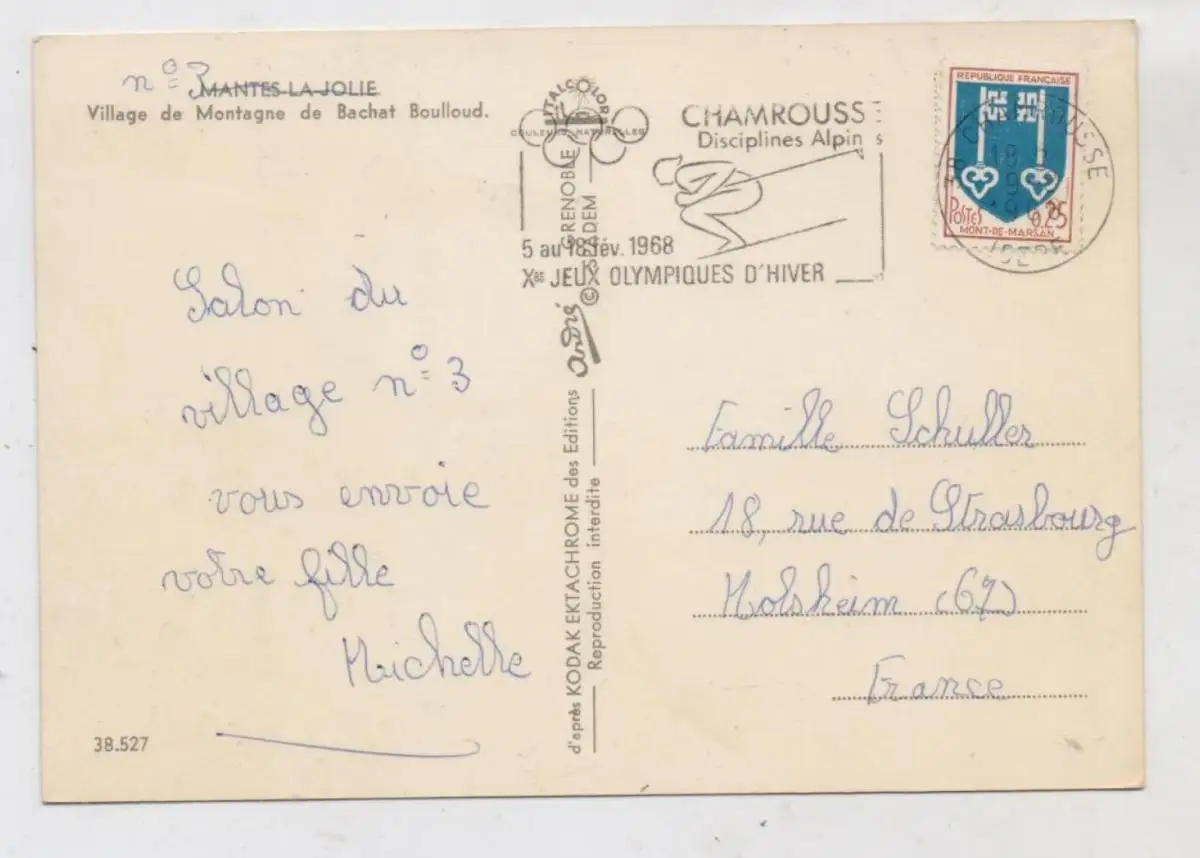 n° 3
MANTES-LA-JOLIE
Village de Montagne de Bachat Boulloud.
Salon du
village n° 3
vous envoie
votre fille
Michelle
38.527
d'après KODAK EKTACHROME des Editions André © GRENOBLE
Reproduction interdite
ITALCOLOR
COULEURS NATURELLES
CHAMROUSSE
Disciplines Alpin s
5 au 18 fév. 1968
Xes JEUX OLYMPIQUES D'HIVER
REPUBLIQUE FRANÇAISE
POSTES
0,25
MONT-DE-MARSAN
38 CHAMROUSSE
ISERE
Famille Schuller
18, rue de Strasbourg
Molsheim (67)
France